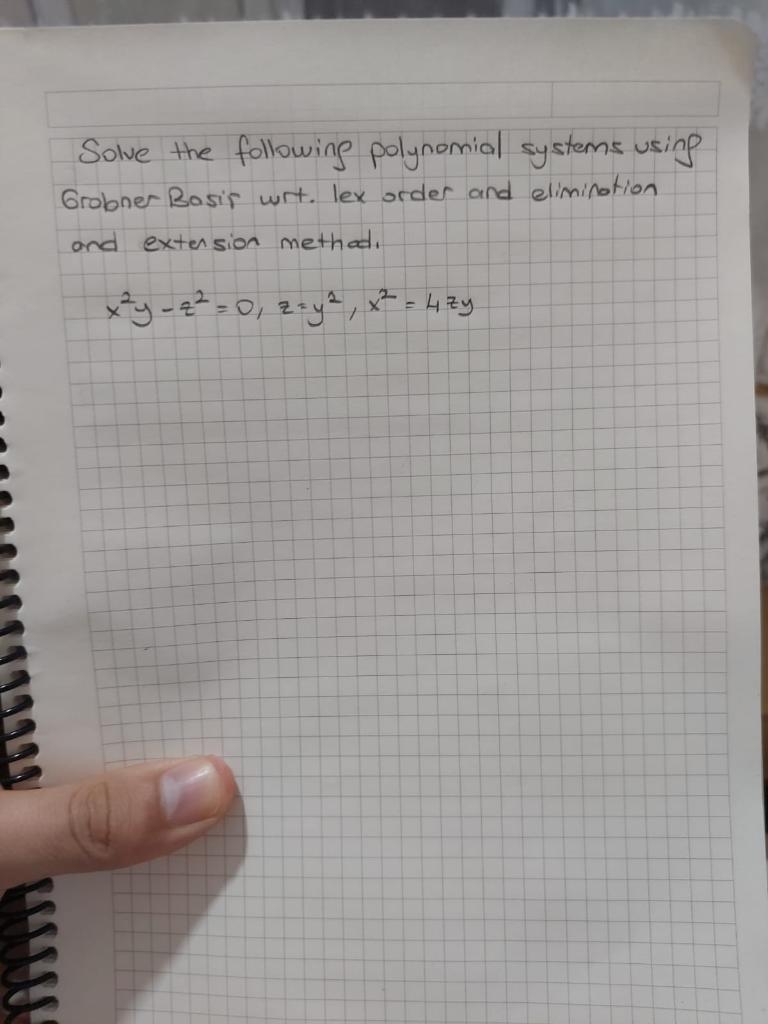 Solve the following polynomial systems using
Grobner Basis wrt. lex order and elimination
and extension method.
x²y - z² = 0, z = y², x² = 4zy